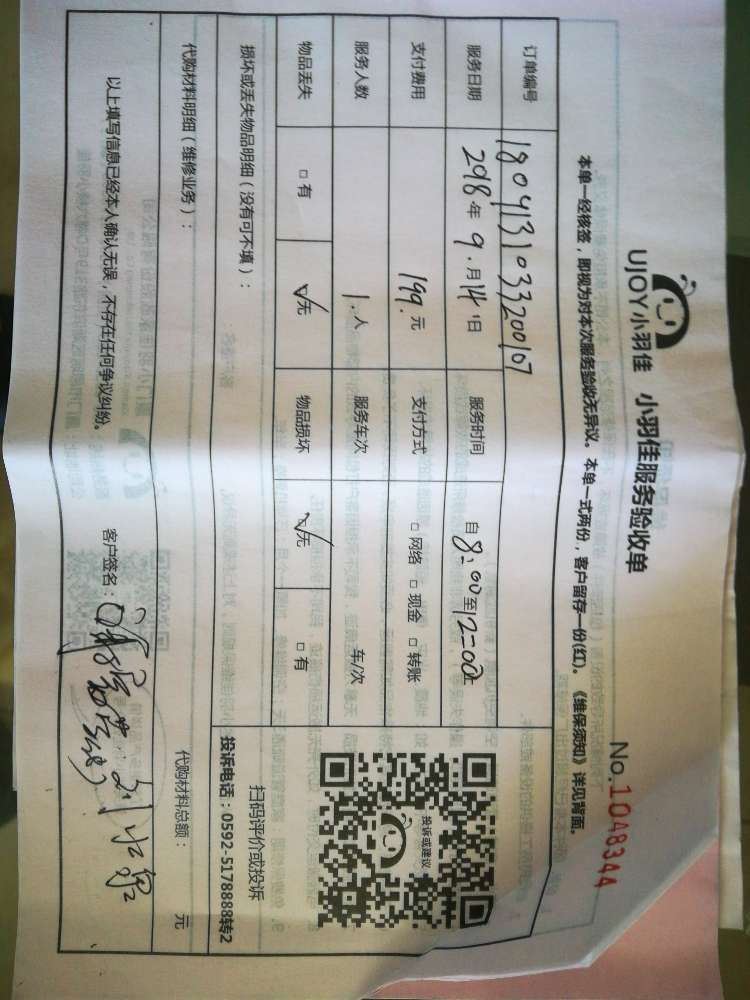 UJOY小羽佳 小羽佳服务验收单
No.1048344
本单一经核签，即视为对本次服务验收无异议。本单一式两份，客户留存一份(红)。《维保须知》详见背面。
订单编号 1809131033200107
服务日期 2018年9.月14日 服务时间 自8:00至12:00止
支付费用 199.元 支付方式 □网络 □现金 □转账
服务人数 1.人 服务车次 车/次
物品丢失 □有 ☑无 物品损坏 ☑无 □有
投诉或建议
扫码评价或投诉
投诉电话：0592-5178888转2
损坏或丢失物品明细（没有可不填）：
代购材料明细（维修业务）： 代购材料总额： 元
以上填写信息已经本人确认无误，不存在任何争议纠纷。 客户签名：